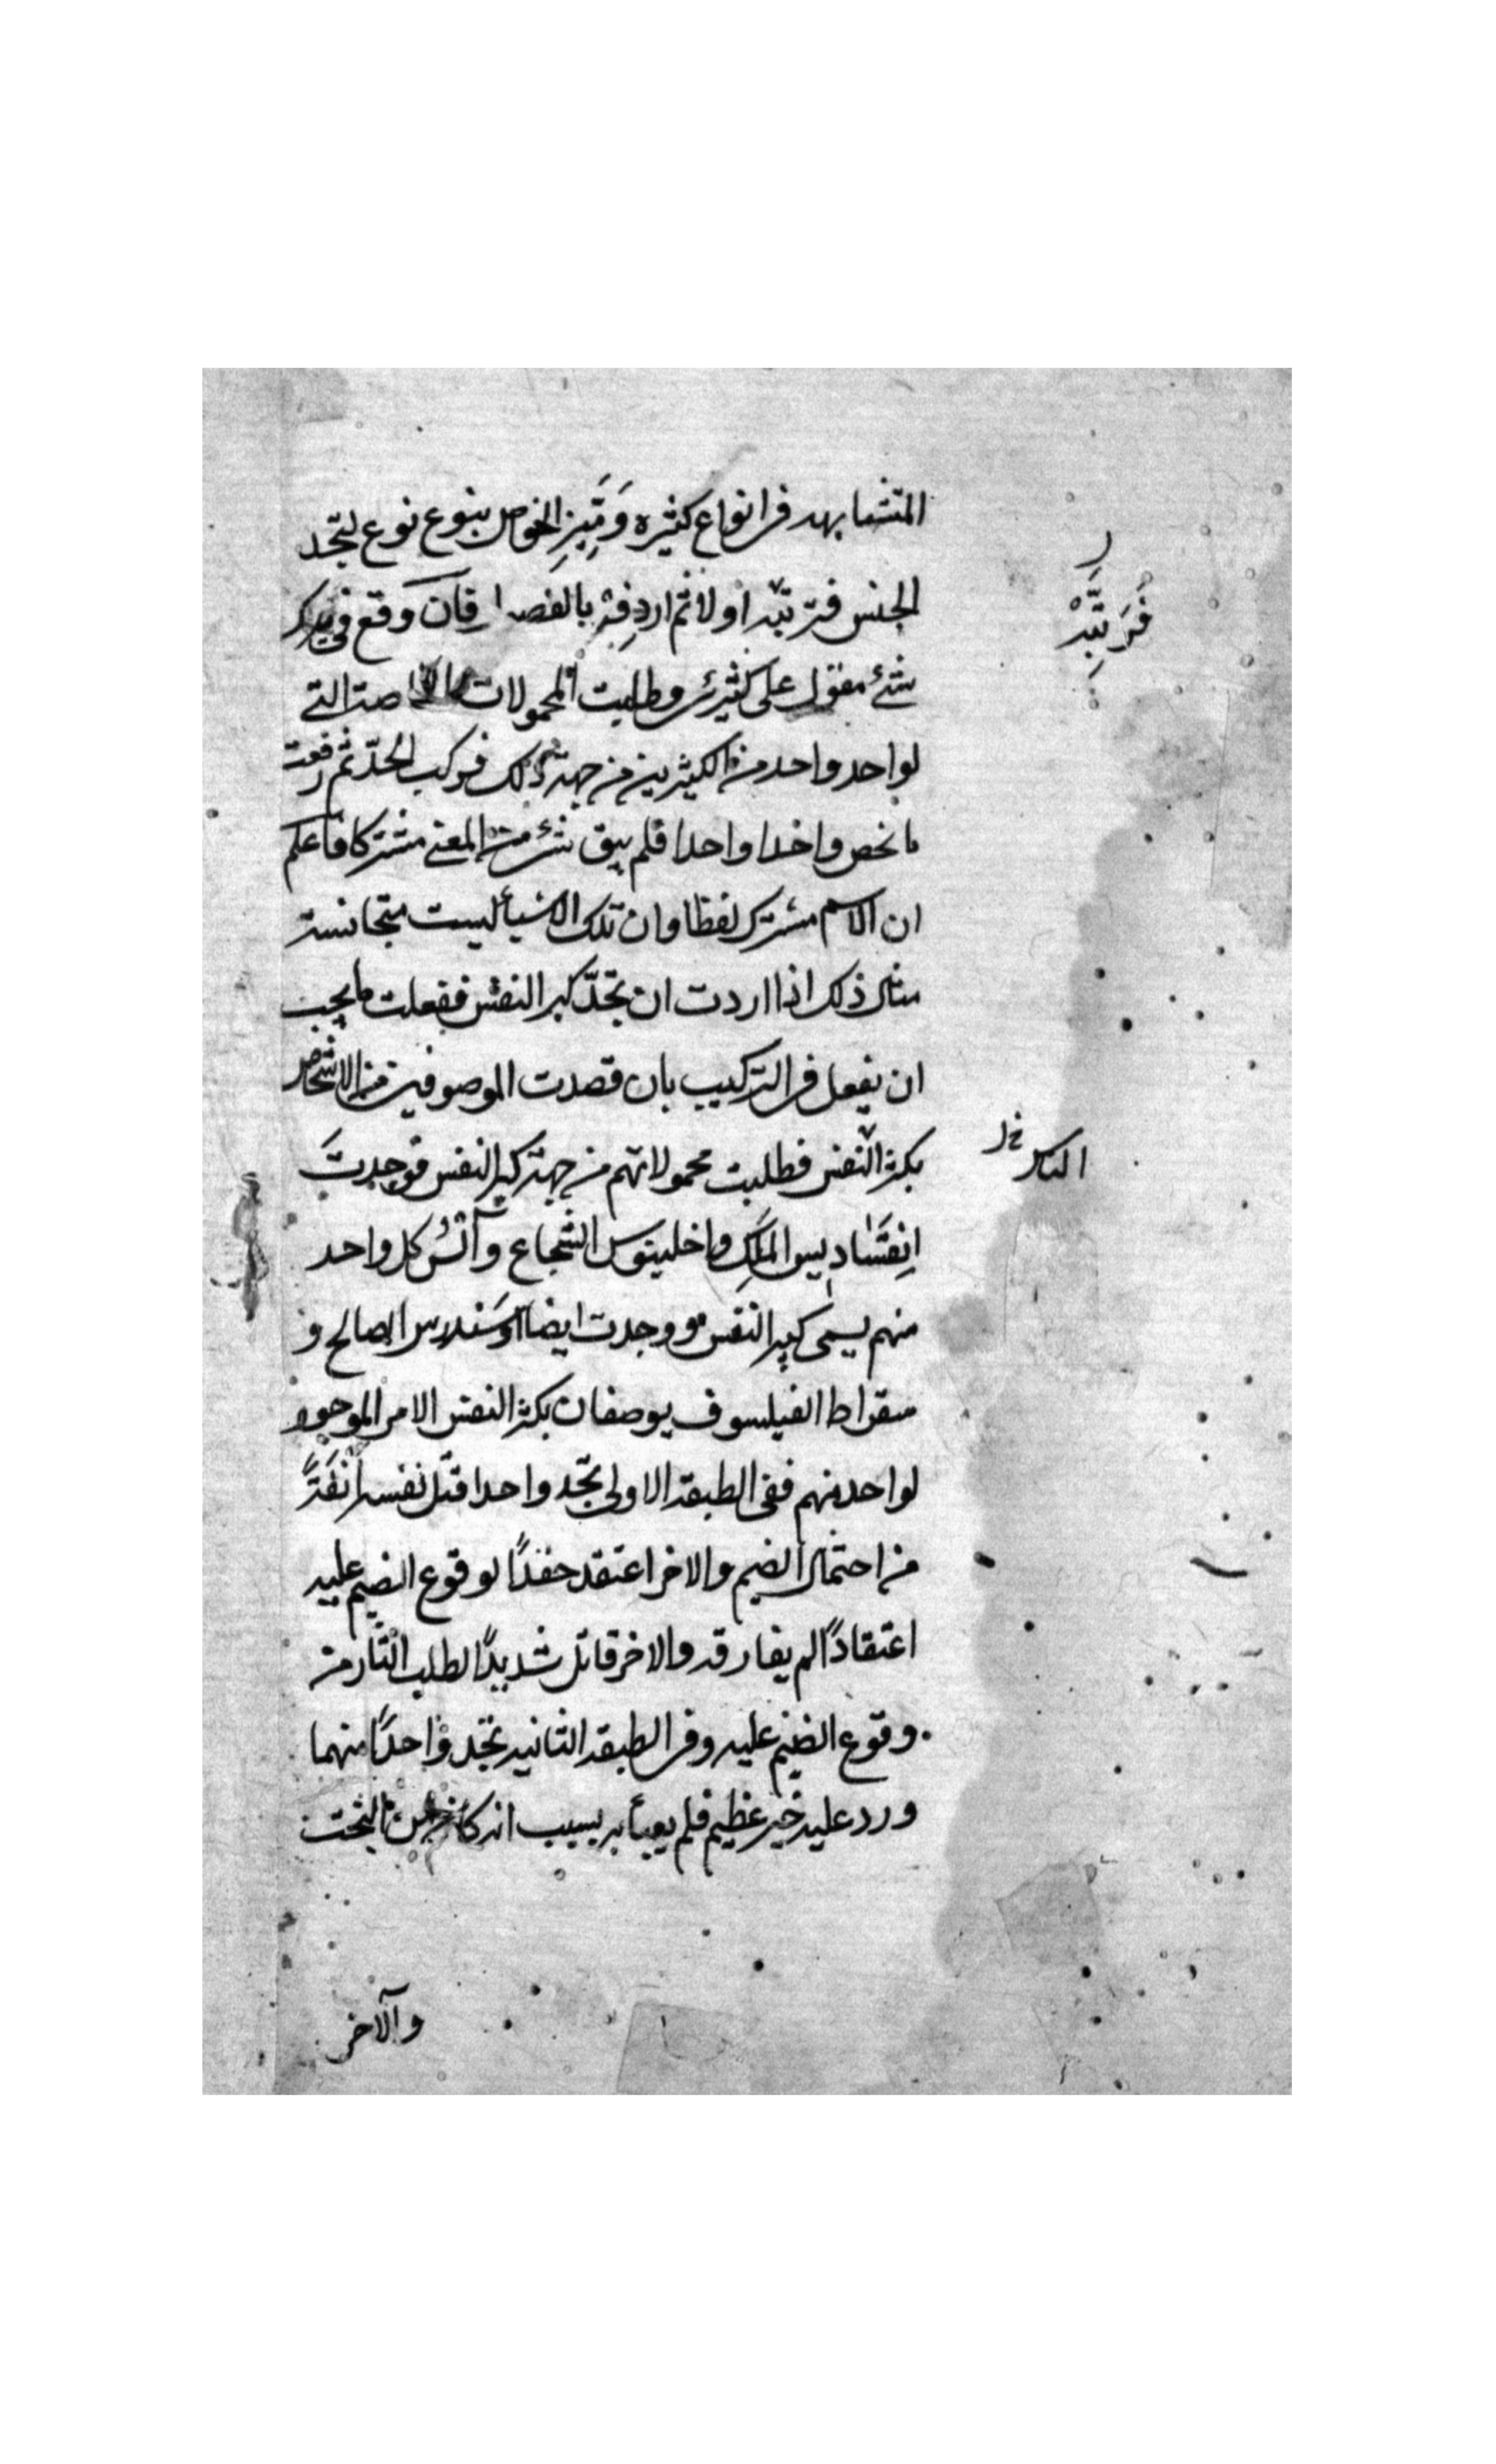 المتشابهه فى انواع كثيره وَمَيِّزِ الخواص بنوع نوع لتجد
الجنس فترتبه اولا ثم اردِفْه بالفصل فان وقع فى
شئ مقول على كثيرين وطلبت المحمولات الخاصة التى
لواحد واحد من الكثيرين من جهة ذلك فركب الحدّ ثم رفعت
ما يخص واحدا واحدا فلم يبق شئ من المعنى مشتركا فاعلم
ان الاسم مشترك لفظا وان تلك الاشيأ ليست متجانسة
مثال ذلك اذا اردت ان تحدّ كبر النفس ففعلت ما يجب
ان يفعل فى التركيب بان قصدت الموصوفين من الاشخاص
بكبر النفس فطلبت محمولاتهم من جهة كبر النفس فوجدتَ
الملك واخلينوس الشجاع و كل واحد
منهم يسمى كبير النفس ووجدت ايضا الصالح و
سقراط الفيلسوف يوصفان بكبر النفس الامر الموجود
لواحد منهم ففى الطبقة الاولى تجد واحدا قتل نفسه انفةً
من احتمال الضيم والاخر اعتقد حقدًا لوقوع الضيم عليه
اعتقادًا لم يفارقه والاخر قاتل شديدًا لطلب الثار من
وقوع الضيم عليه وفى الطبقة الثانيه تجد واحدًا منهما
ورد عليه خير عظيم فلم يعبأ به بسبب انه كان من البخت
والآخر
فَرَتِّبْهُ